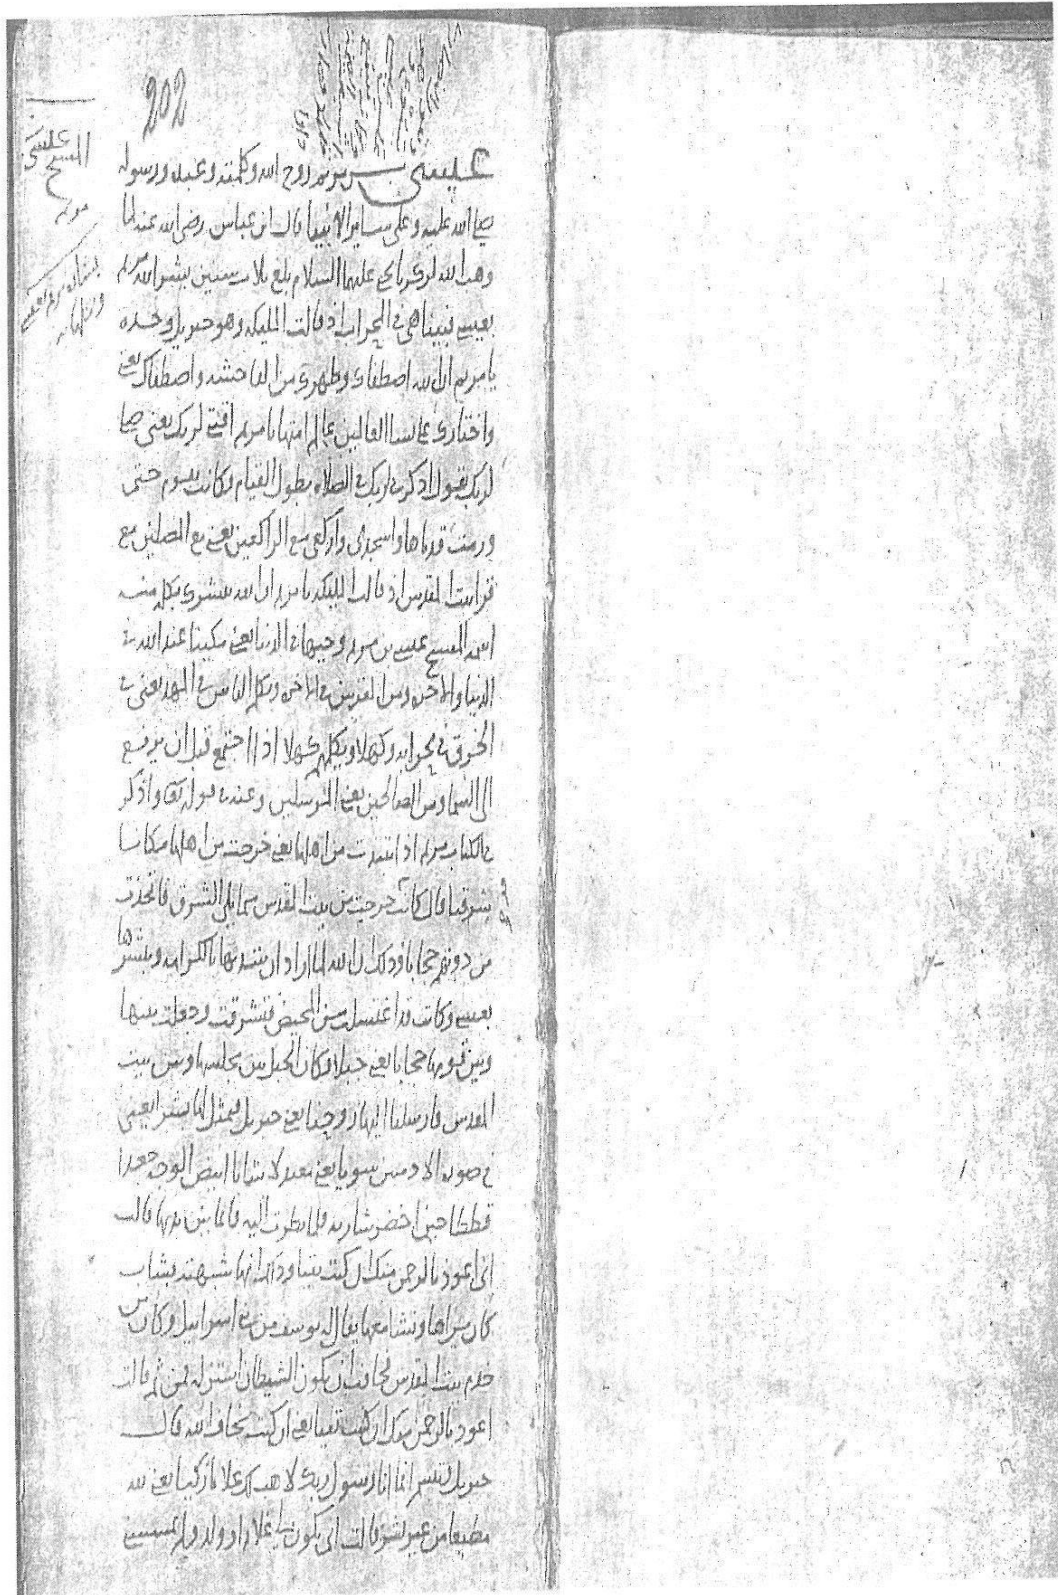 202
المسيح عيسى
عيسى بن مريم روح الله وكلمته وعبده ورسوله
صلى الله عليه وعلى ساير الانبيا قال ابن عباس رضى الله عنه لما
وهب الله لزكريا يحيى عليهما السلام بلغ ثلاث سنين بشر الله مريم
بعيسى فبينا هى فى المحراب اذ قالت المليكه وهو جبريل وحده
يا مريم ان الله اصطفاك وطهرك من الفاحشه واصطفاك يعنى
واختارك على نسا العالمين عالم امتها يا مريم اقنتى لربك يعنى صلى
لربك يقول اذكرى لربك فى الصلاه بطول القيام فكانت تقوم حتى
ورمت قدماها واسجدى واركعى مع الراكعين يعنى مع المصلين مع
قرا بيت المقدس اذ قالت المليكه يا مريم ان الله يبشرك بكلمه منه
اسمه المسيح عيسى بن مريم وجيها فى الدنيا يعنى مكينا عند الله فى
الدنيا والاخره ومن المقربين فى الاخره ويكلم الناس فى المهد يعنى فى
الخرق فى محرابه وكهلا ويكلمهم كهلا اذا اجتمع قبل ان يرفع
الى السما ومن الصالحين يعنى المرسلين وعنه فى قوله تعالى واذكر
فى الكتاب مريم اذ انتبذت من اهلها يعنى خرجت من اهلها مكانا
شرقيا قال كانت خرجت من بيت المقدس مما يلى الشرق فاتخذت
من دونهم حجابا وذلك ان الله لما اراد ان يبتديها بالكرامه ويبشرها
بعيسى وكانت قد اغتسلت من المحيض فتشرقت وجعلت بينها
وبين قومها حجابا يعنى جبلا فكان الجبل بين مجلسها وبين بيت
المقدس فارسلنا اليها روحنا يعنى جبريل فتمثل لها بشرا يعنى
فى صوره الادميين سويا يعنى معتدلا شابا ابيض الوجه جعدا
قططا حين اخضر شاربه فلما نظرت اليه قايما بين يديها قالت
انى اعوذ بالرحمن منك ان كنت تقيا وذلك انها شبهته بشاب
كان يراها ونشا معها يقال له يوسف من بنى اسرايل وكان من
خدم بيت المقدس فخافت ان يكون الشيطان استزله فمن ثم قالت
اعوذ بالرحمن منك ان كنت تقيا يعنى ان كنت تخاف الله قال
جبريل وتبسم انما انا رسول ربك لاهب لك غلاما زكيا يعنى لله
مطيعا من غير بشر قالت انى يكون لى غلام او ولد ولم يمسسنى